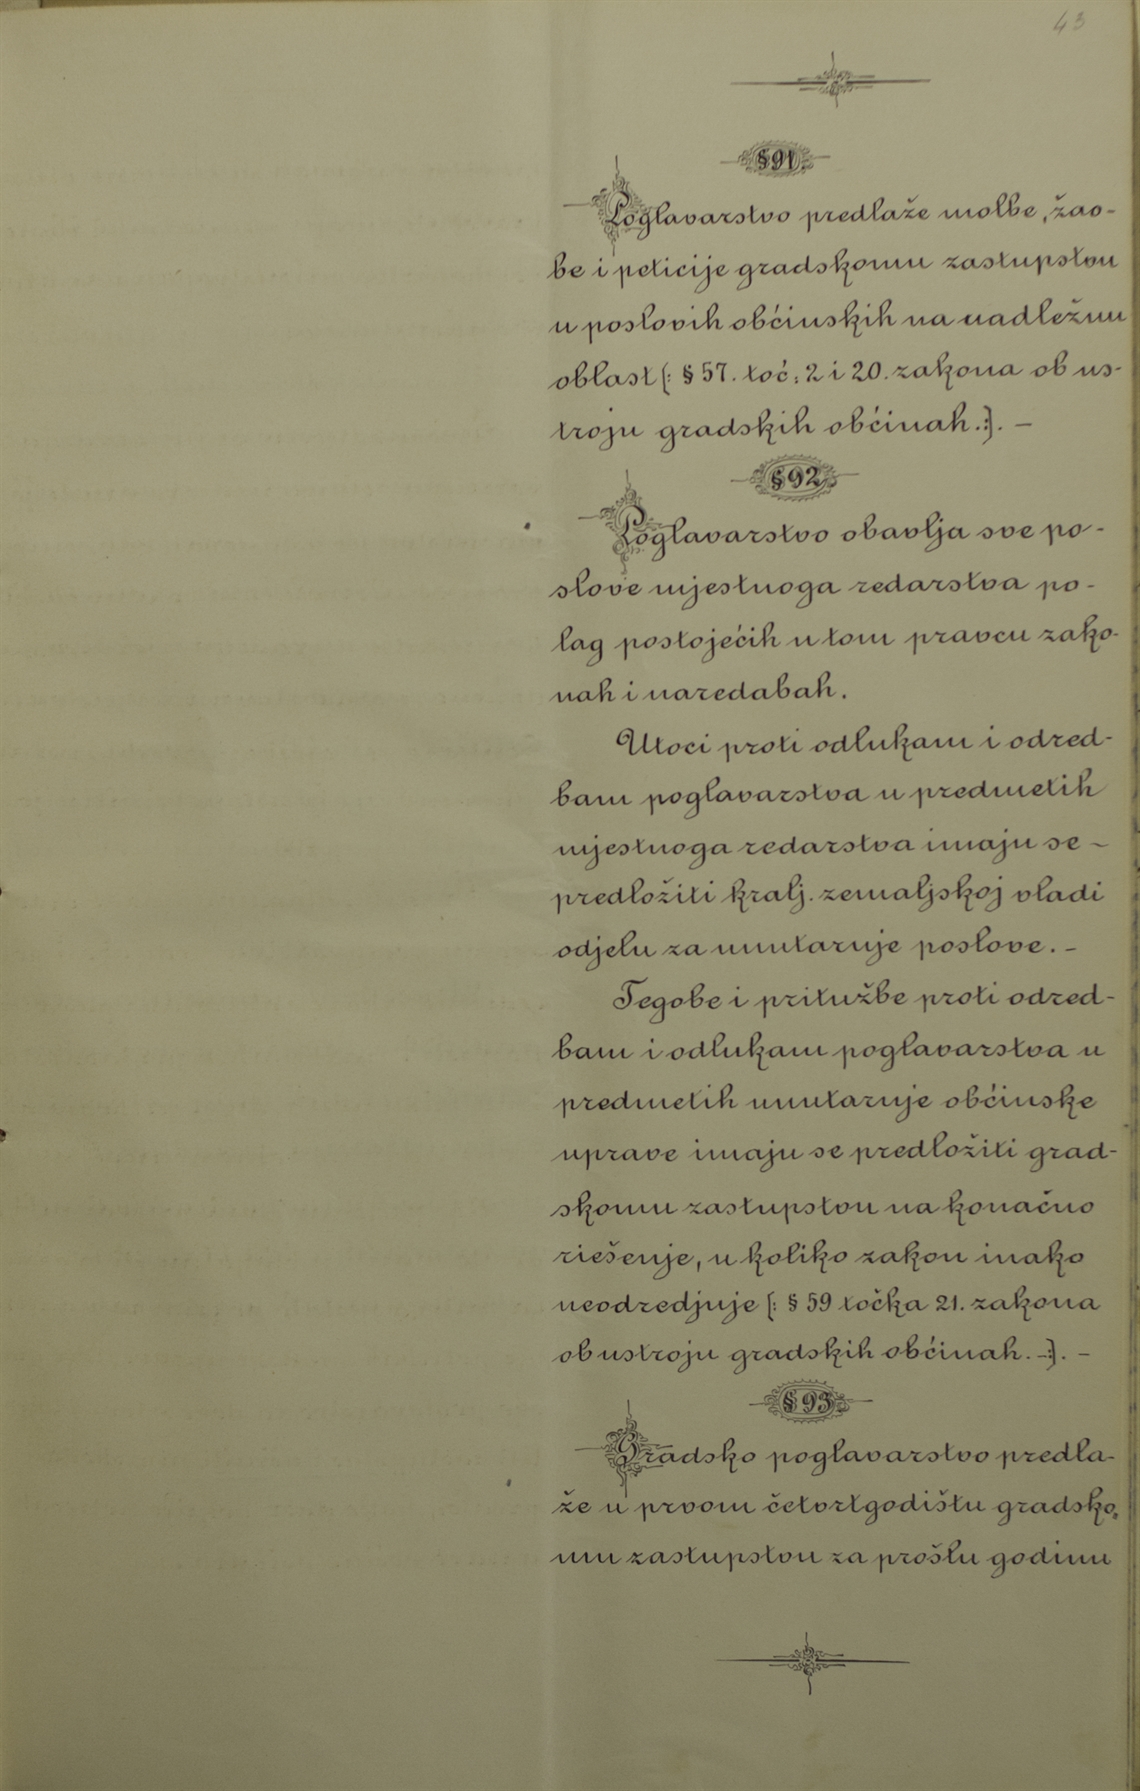 43
§ 91.
Poglavarstvo predlaže molbe, žao-
be i peticije gradskomu zastupstvu
u poslovih občinskih na nadležnu
oblast (: § 57. toč: 2 i 20. zakona ob us-
troju gradskih občinah.:). –
§ 92.
Poglavarstvo obavlja sve po-
slove mjestnoga redarstva po-
lag postoječih u tom pravcu zako-
nah i naredabah.
Utoci proti odlukam i odred-
bam poglavarstva u predmetih
mjestnoga redarstva imaju se –
predložiti kralj. zemaljskoj vladi
odjelu za unutarnje poslove. –
Tegobe i pritužbe proti odred-
bam i odlukam poglavarstva u
predmetih unutarnje občinske
uprave imaju se predložiti grad-
skomu zastupstvu na konačno
riešenje, u koliko zakon inako
neodredjuje (: § 59 točka 21. zakona
ob ustroju gradskih občinah. –:). –
§ 93.
Gradsko poglavarstvo predla-
že u prvom četvrtgodištu gradsko-
mu zastupstvu za prošlu godinu